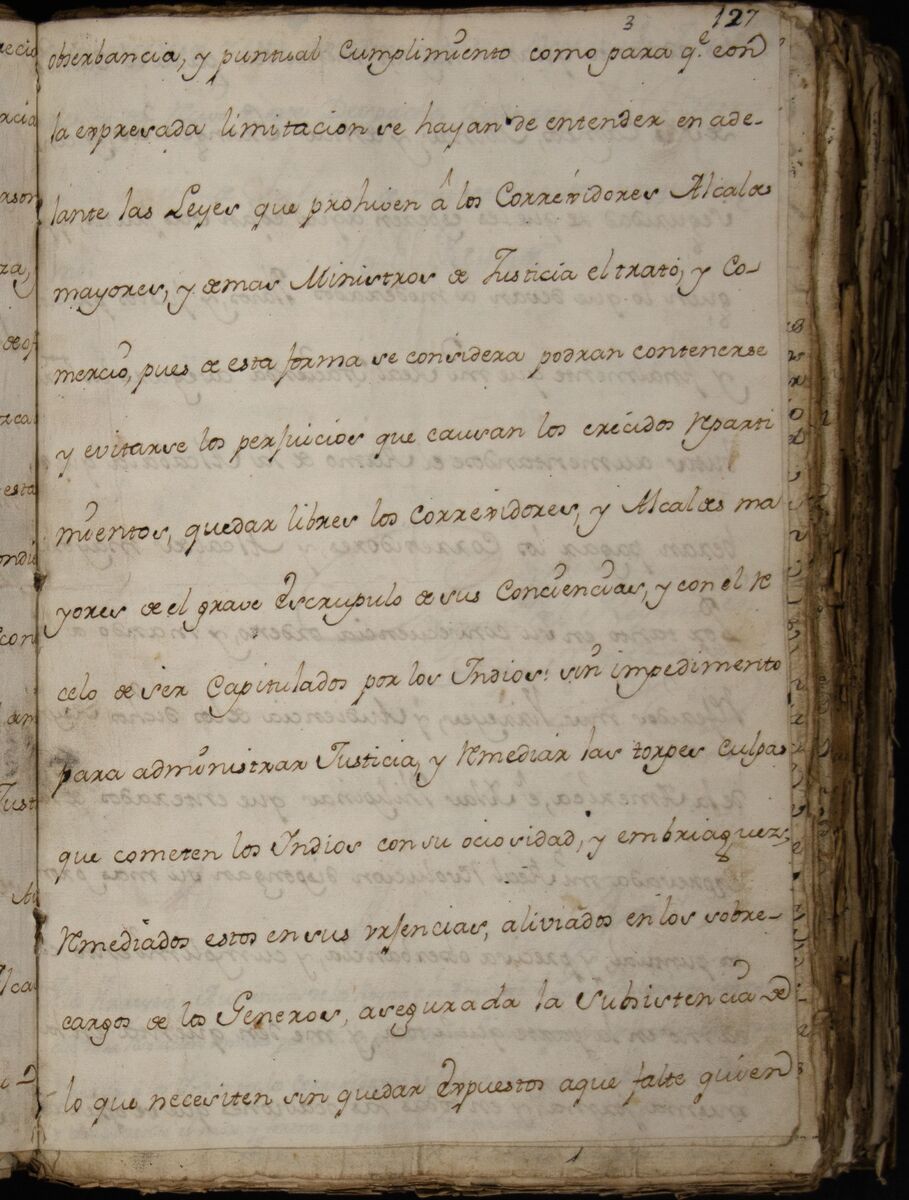 3 127
obserbancia, y puntual Cumplimiento como para q.e con
la expresada limitacion se hayan de entender en ade-
lante las Leyes que prohiven â los Correxidores Alcaldes
mayores, y demas Ministros de Justicia el trato, y Co-
mercio, pues de esta forma se considera podran contenerse
y evitarse los perjuicios que causan los crecidos Reparti
mientos, quedar libres los Correxidores, y Alcaldes ma
yores de el grave Escrupulo de sus Conciencias, y con el Re
celo de ser Capitulados por los Indios: sin impedimento
para administrar Justicia, y Remediar las torpes Culpas
que cometen los Indios con su ociosidad, y embriaguez,
Remediados estos en sus urjencias, aliviados en los sobre-
cargos de los Generos, asegurada la Subsistencia de
lo que necesiten sin quedar Expuestos a que falte quien